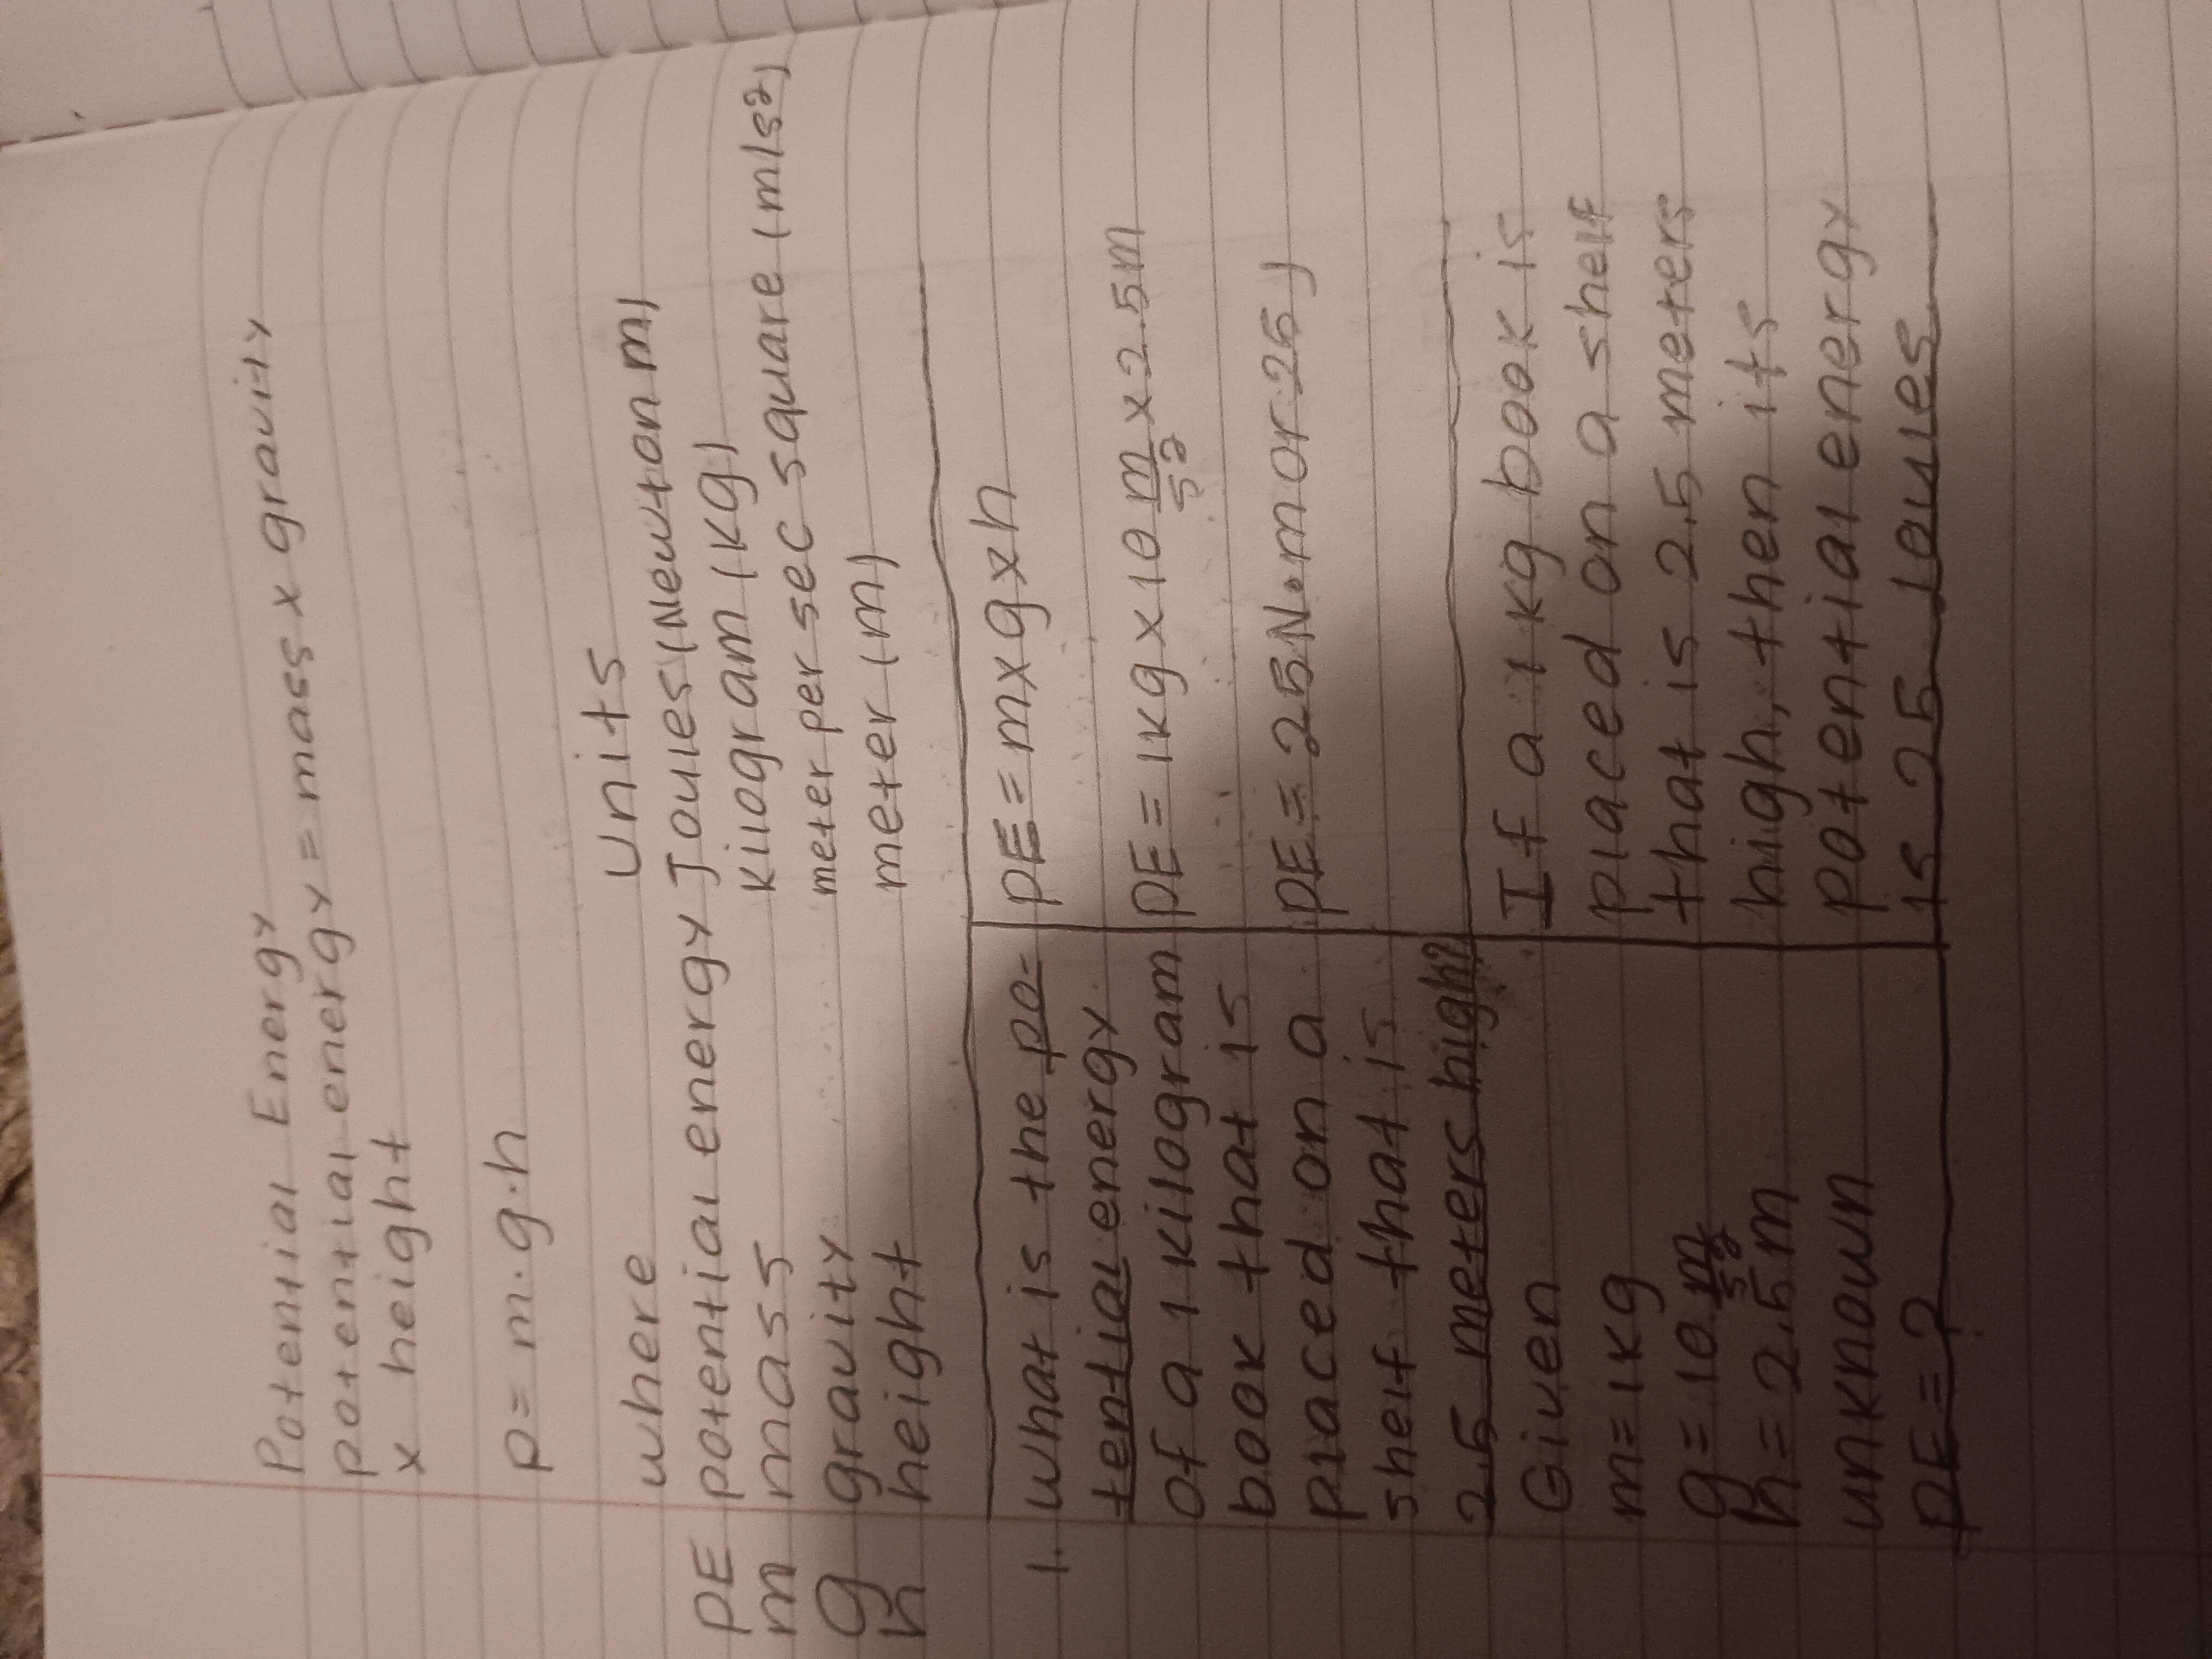 Potential Energy
potential energy = mass x gravity
x height
P = m·g·h
where
units
PE potential energy Joules (Newton m)
m mass kilogram (kg)
g gravity meter per sec square (m/s2)
h height meter (m)
1. What is the po-
tential energy
of a 1 kilogram
book that is
placed on a
shelf that is
2.5 meters high?
Given
m = 1kg
g = 10 m/s2
h = 2.5m
unknown
PE = ?
PE = m x g x h
PE = 1kg x 10 m/s2 x 2.5m
PE = 25N·m or 25J
If a 1kg book is
placed on a shelf
that is 2.5 meters
high, then its
potential energy
is 25 Joules